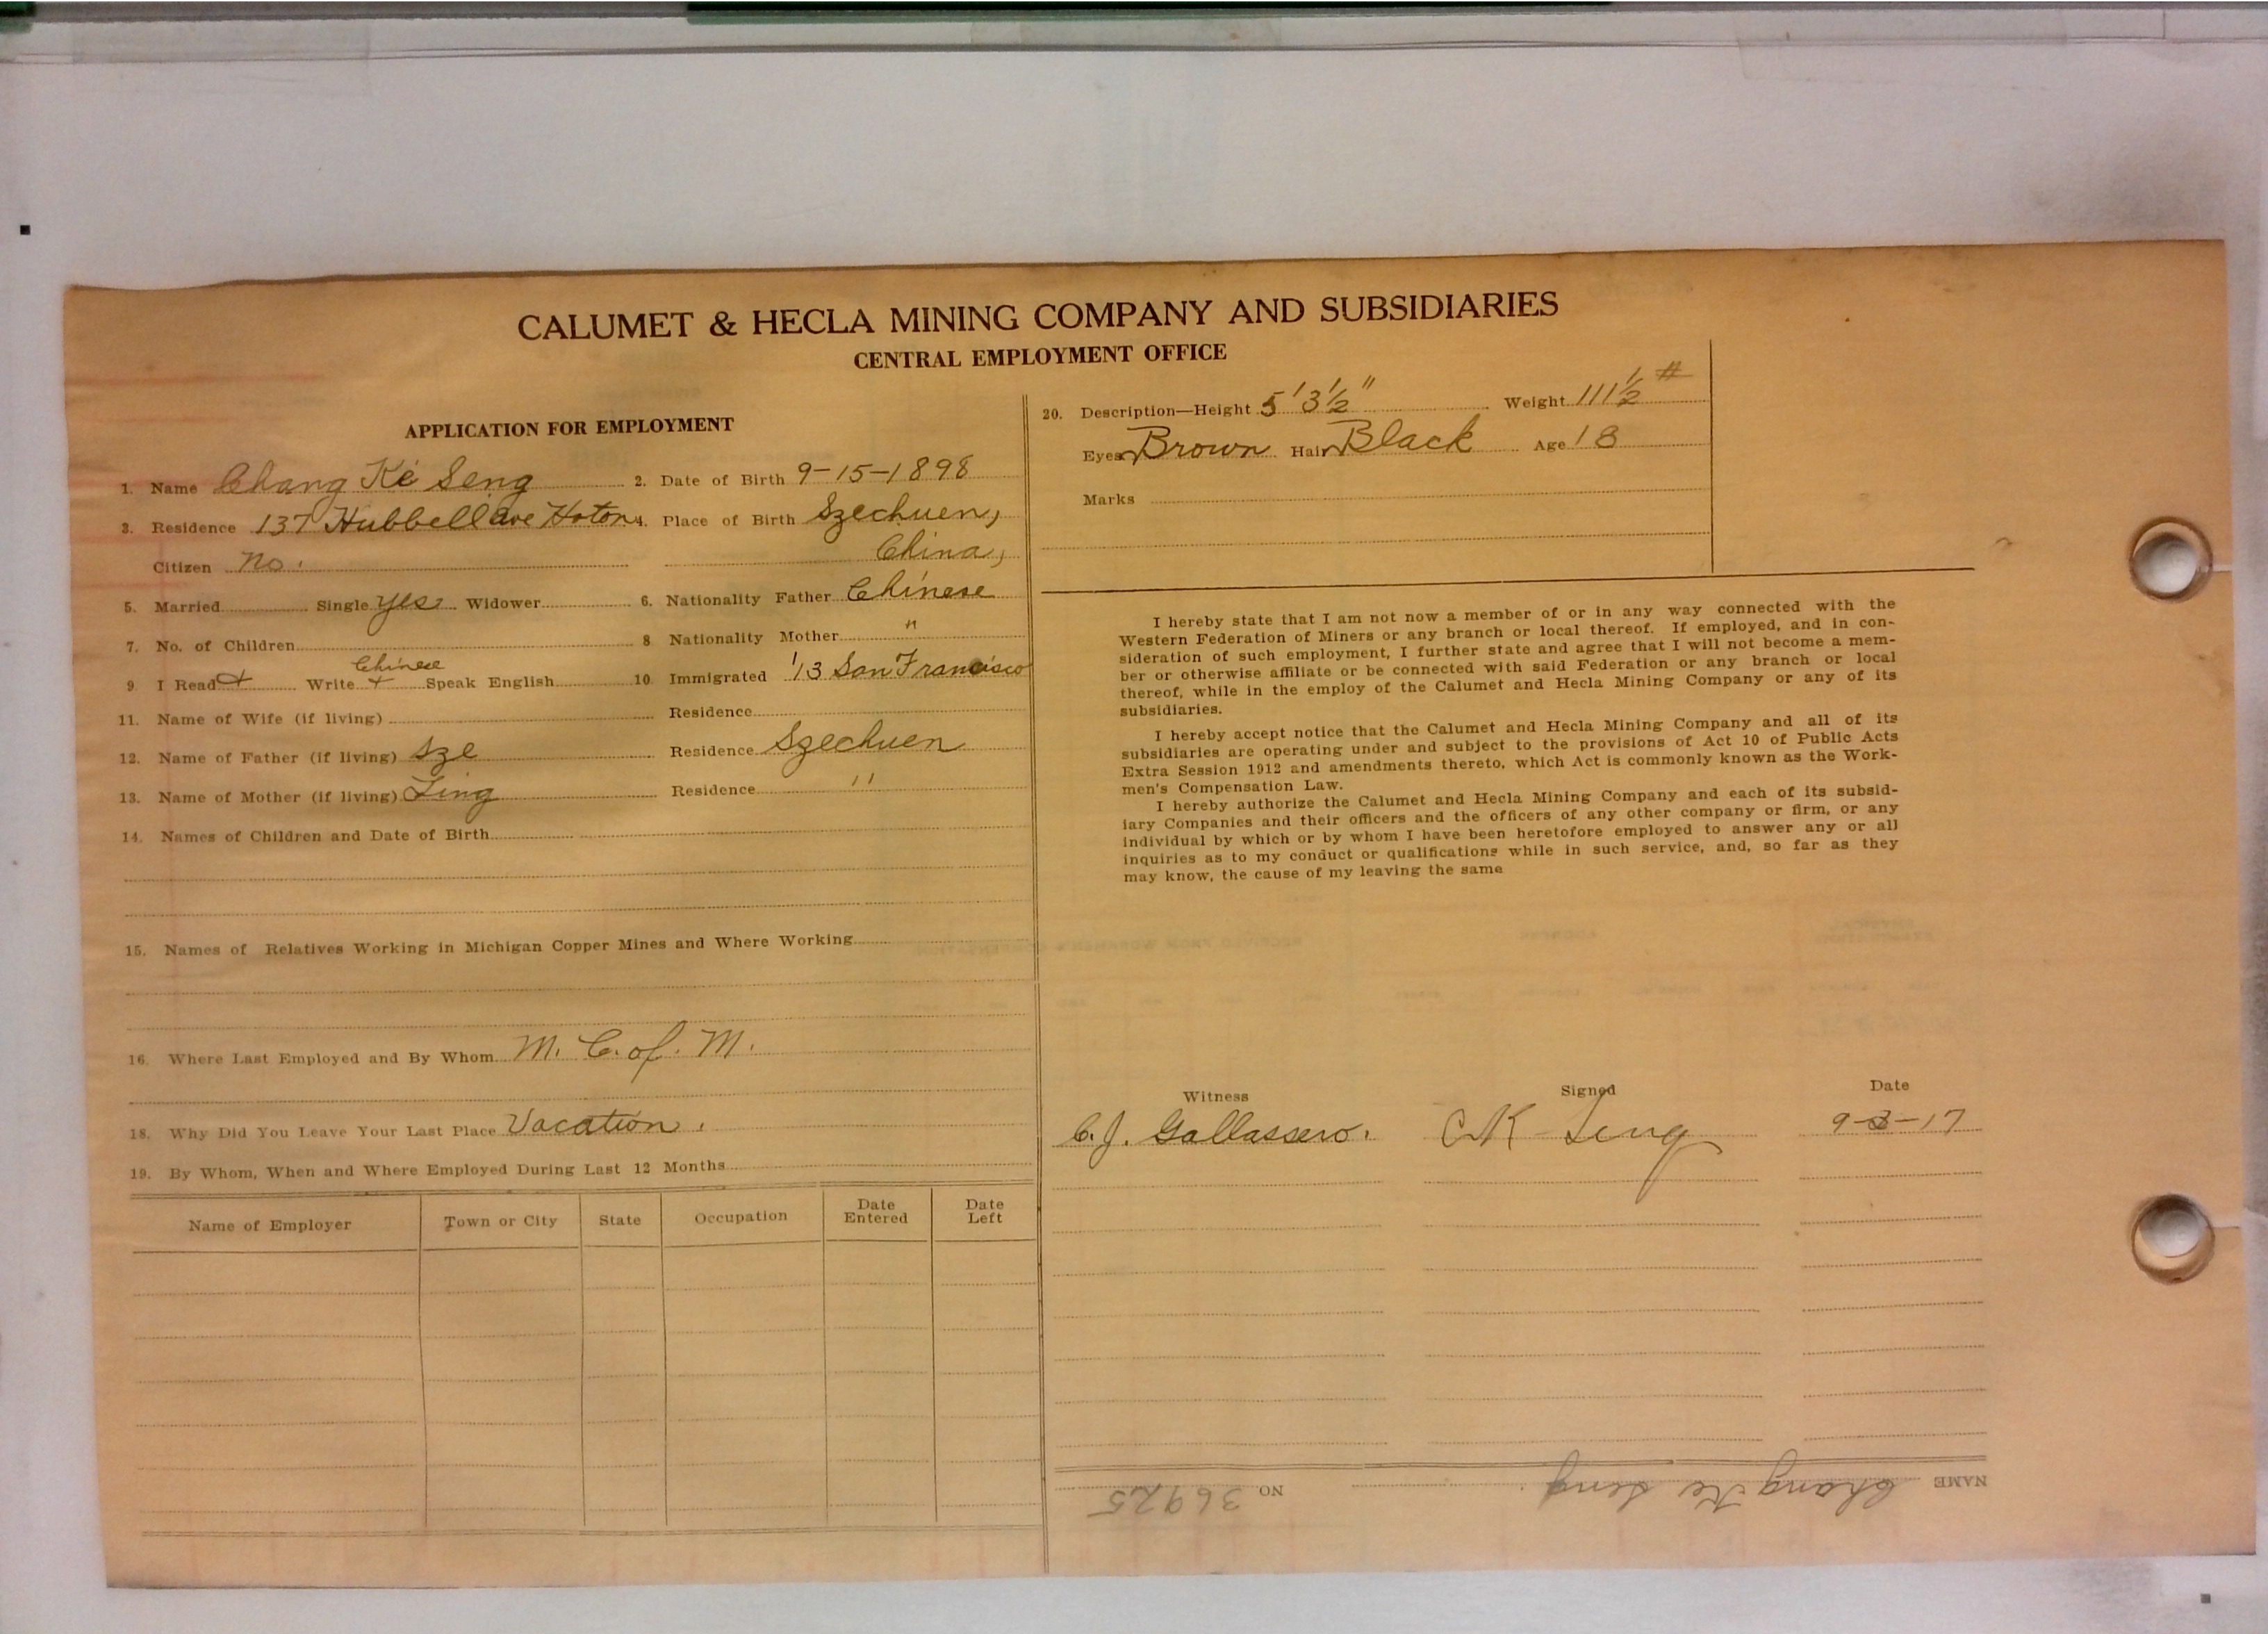 CALUMET & HECLA MINING COMPANY AND SUBSIDIARIES
CENTRAL EMPLOYMENT OFFICE
APPLICATION FOR EMPLOYMENT
1. Name Chang Ke Seng 2. Date of Birth 9-15-1898
3. Residence 137 Hubbell ave Hoton 4. Place of Birth Szechuen,
Citizen no. China,
5. Married Single yes Widower 6. Nationality Father Chinese
7. No. of Children 8 Nationality Mother "
Chinese
9 I Read + Write + Speak English 10 Immigrated '13 San Francisco
11. Name of Wife (if living) Residence
12. Name of Father (if living) Sze Residence Szechuen
13. Name of Mother (if living) Ling Residence "
14. Names of Children and Date of Birth
15. Names of Relatives Working in Michigan Copper Mines and Where Working
16. Where Last Employed and By Whom M. C. of. M.
18. Why Did You Leave Your Last Place Vacation.
19. By Whom, When and Where Employed During Last 12 Months
Name of Employer Town or City State Occupation Date Entered Date Left
20. Description—Height 5'3½" Weight 111½ #
Eyes Brown Hair Black Age 18
Marks
I hereby state that I am not now a member of or in any way connected with the
Western Federation of Miners or any branch or local thereof. If employed, and in con-
sideration of such employment, I further state and agree that I will not become a mem-
ber or otherwise affiliate or be connected with said Federation or any branch or local
thereof, while in the employ of the Calumet and Hecla Mining Company or any of its
subsidiaries.
I hereby accept notice that the Calumet and Hecla Mining Company and all of its
subsidiaries are operating under and subject to the provisions of Act 10 of Public Acts
Extra Session 1912 and amendments thereto, which Act is commonly known as the Work-
men's Compensation Law.
I hereby authorize the Calumet and Hecla Mining Company and each of its subsid-
iary Companies and their officers and the officers of any other company or firm, or any
individual by which or by whom I have been heretofore employed to answer any or all
inquiries as to my conduct or qualifications while in such service, and, so far as they
may know, the cause of my leaving the same
Witness Signed Date
C. J. Gallassero. C K Seng 9-3-17
NAME Chang Ke Seng NO 36925